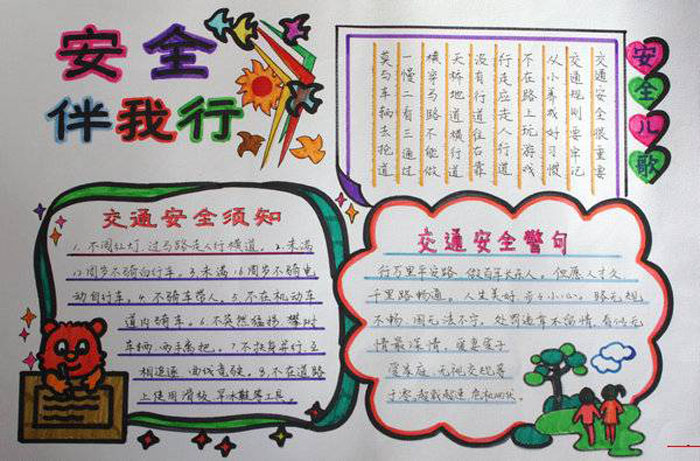 安全
伴我行
安全儿歌
交通安全很重要
交通规则要牢记
从小养成好习惯
不在路上玩游戏
行走应走人行道
没有行道往右靠
天桥地道横行道
横穿马路不能做
一慢二看三通过
莫与车辆去抢道
交通安全须知
1.不闯红灯,过马路走人行横道。2.未满
12周岁不骑自行车。3.未满16周岁不骑电
动自行车。4.不骑车带人。5.不在机动车
道内骑车。6.不突然猛拐、攀附
车辆、两手离把。7.不扶身并行、互
相追逐、曲线竞驶。8.不在道路
上使用滑板、旱冰鞋等工具。
交通安全警句
行万里平安路,做百年长乐人。但愿人才久
千里路畅通。人生美好,步步小心。路无规
不畅,国无法不宁。处罚违章不留情,看似无
情最深情。爱妻爱子
爱家庭,无视交规等
于零。超载超速,危机四伏。